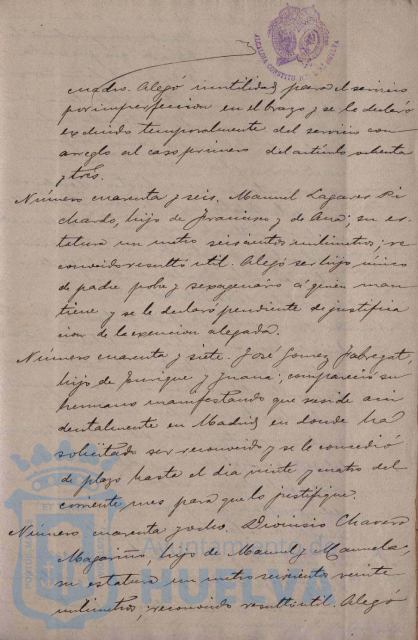 ALCALDIA CONSTITUCIONAL HUELVA
madre. Alegó inutilidad para el servicio
por imperfeccion en el brazo y se le declaró
excluido temporalmente del servicio con
arreglo al caso primero del artículo ochenta
y tres.
Número cuarenta y seis. Manuel Lagares Pi
chardo, hijo de Francisco y de Ana; su es-
tatura un metro seiscientos milimetros; re
conocido resultó util. Alegó ser hijo único
de padre pobre y sexagenario á quien man
tiene y se le declaró pendiente de justifica
cion de la exencion alegada.
Número cuarenta y siete. José Gomez Fabregat,
hijo de Enrique y Juana; compareció su
hermano manifestando que reside acci
dentalmente en Madrid en donde ha
solicitado ser reconocido y se le concedió
de plazo hasta el dia veinte y cuatro del
corriente mes para que lo justifique.
Número cuarenta y ocho. Dionisio Chavero
Magariño, hijo de Manuel y Manuela,
su estatura un metro seiscientos veinte
milimetros; reconocido resultó util. Alegó
Ayuntamiento de
HUELVA